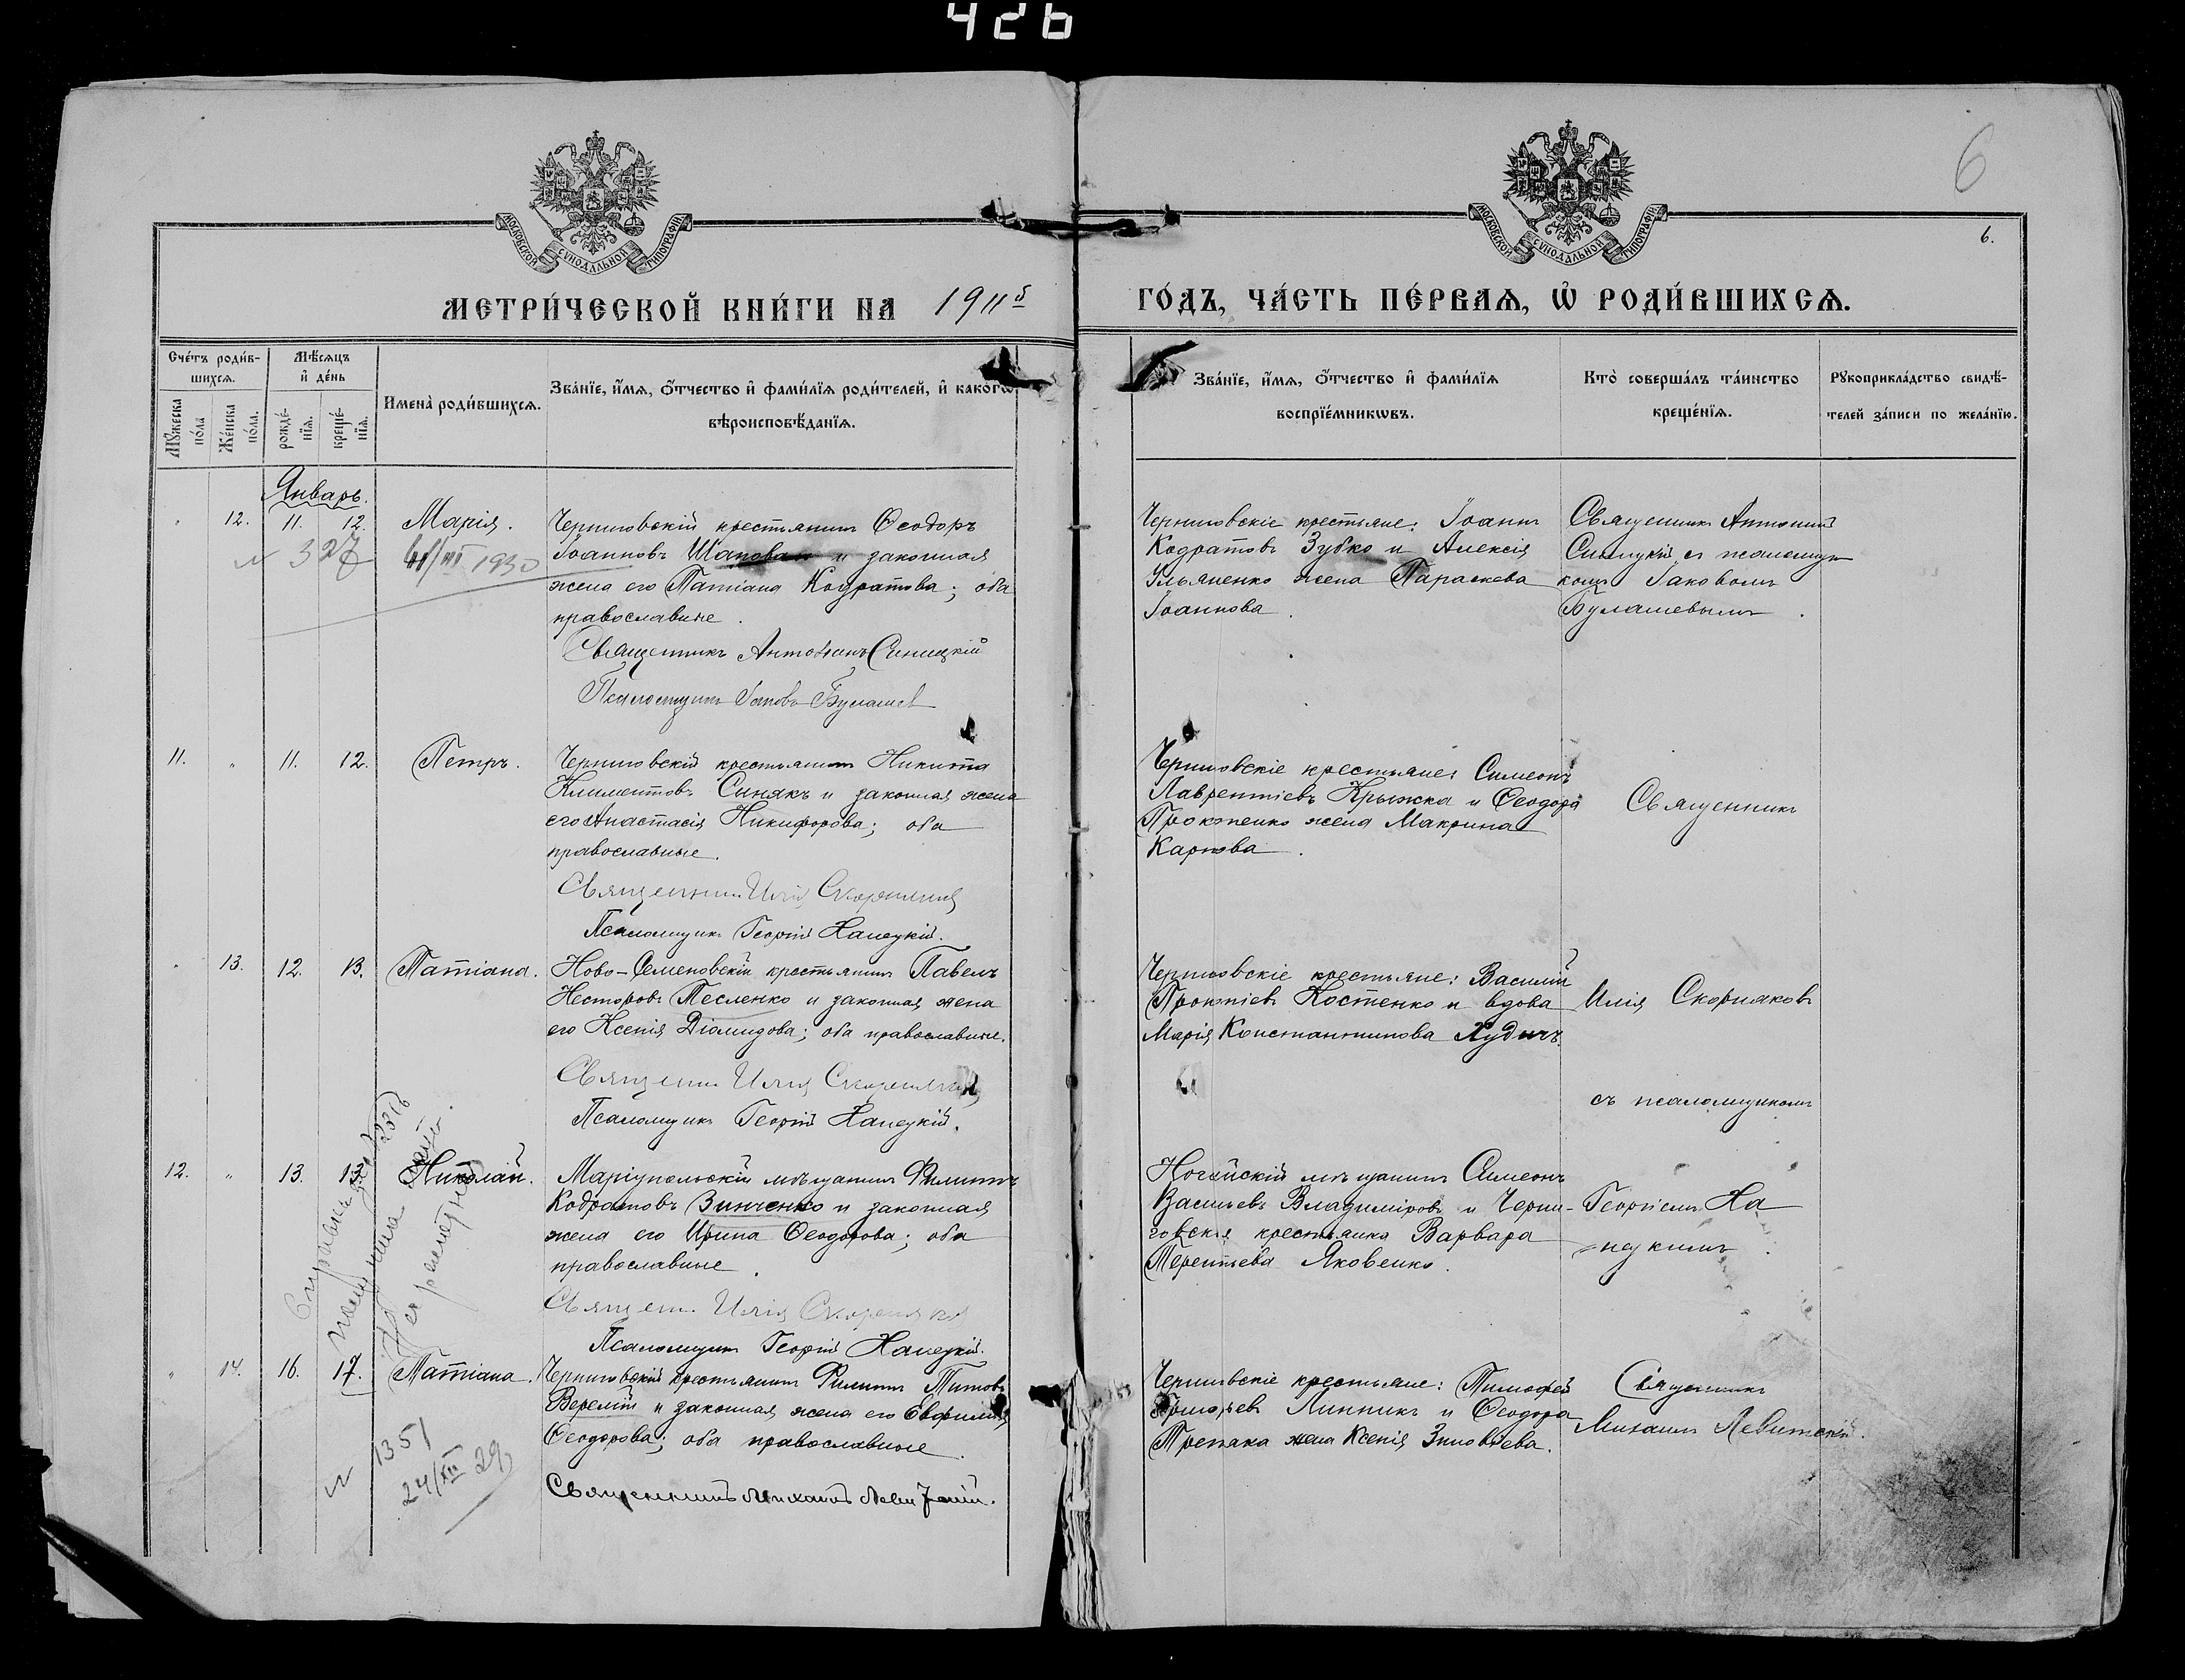 426
6
6.
МОСКОВСКОЙ СУНОДАЛЬНОЙ ТИПОГРАФІИ
МОСКОВСКОЙ СУНОДАЛЬНОЙ ТИПОГРАФІИ
МЕТРИ́ЧЕСКОЙ КНИ́ГИ НА 1911й
ГО́ДЪ, ЧА́СТЬ ПЕ́РВАѦ, Ѽ РОДИ́ВШИХСѦ.
Сче́тъ роди́в-
шихсѧ.
Мѣ́сѧцъ
и҆ де́нь
Мꙋ́жеска по́ла
Же́нска по́ла.
рожде́-
нїѧ.
креще́-
нїѧ.
Имена̀ роди́вшихсѧ.
Зва́нїе, и҆́мѧ, ѻ҆́тчество и҆ фами́лїѧ роди́телей, и҆ како́гѡ
вѣроисповѣ́данїѧ.
Зва́нїе, и҆́мѧ, ѻ҆́тчество и҆ фами́лїѧ
воспрїе́мникѡвъ.
Кто̀ соверша́лъ та́инство
креще́нїѧ.
Рꙋкоприкла́дство свидѣ́-
телей за́писи по жела́нїю.
Январь.
" 12. 11. 12. Марія.
N 327
1930
Черниговскій крестьянинъ Ѳеодоръ
Іоанновъ Шаповал и законная
жена его Татіана Кодратова; оба
православные.
Священникъ Антонинъ Синицкій
Псаломщикъ Іаковъ Булашев
Черниговскіе крестьяне: Іоаннъ
Кодратовъ Зубко и Алексія
Ульяненко жена Параскева
Іоаннова.
Священникъ Антонинъ
Синицкій съ псаломщи-
комъ Іаковомъ
Булашевымъ.
11. " 11. 12. Петръ.
Черниговскій крестьянинъ Никита
Климентовъ Синякъ и законная жена
его Анастасія Никифорова; оба
православные.
Священникъ Илія Скорняковъ
Псаломщикъ Георгій Напецкій.
Черниговскіе крестьяне: Симеонъ
Лаврентіевъ Крыжка и Ѳеодора
Прокопенко жена Макрина
Карпова.
Священникъ
" 13. 12. 13. Татіана.
Ново-Семеновскій крестьянинъ Павелъ
Несторовъ Тесленко и законная жена
его Ксенія Діомидова; оба православные.
Священ. Илія Скорняковъ
Псаломщикъ Георгій Напецкій.
Черниговскіе крестьяне: Василій
Прокопіевъ Костенко и вдова
Марія Константинова Худичъ.
Илія Скорняковъ
съ псаломщикомъ
12. " 13. 13. Николай.
Маріупольскій мѣщанинъ Филиппъ
Кодратовъ Зинченко и законная
жена его Ирина Ѳеодорова; оба
православные.
Священ. Илія Скорняков
Псаломщикъ Георгій Напецкій.
Ногайскій мѣщанинъ Симеонъ
Васильевъ Владиміровъ и Черни-
говская крестьянка Варвара
Терентьева Яковенко.
Георгіемъ На
пецкимъ.
" 14. 16. 17. Татіана.
Черниговскій крестьянинъ Филиппъ Титовъ
Веремій и законная жена его Евфимія
Ѳеодорова; оба православные.
Священникъ Михаилъ
Черниговскіе крестьяне: Тимофей
Григорьев Линникъ и Ѳеодора
Трепака жена Ксенія Зиновьева.
Священникъ
Михаилъ Левитскій.
N 1351
24/XII 29